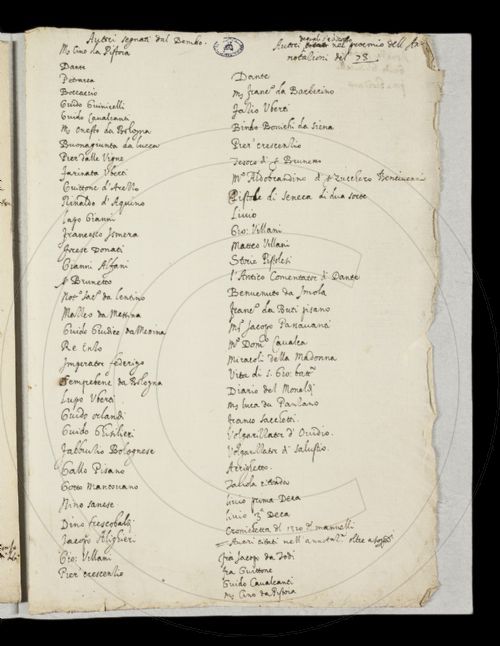 Autori segnati dal Bembo.
Mr Cino da Pistoia
Dante
Petrarca
Boccaccio
Guido Guinicelli
Guido Cavalcanti
Mr Onesto da Bologna
Buonagiunta da lucca
Pier dalle Vigne
farinata Vberti
Guittone d'Arezzo
Rinaldo d'Aquino
Lapo Gianni
francesco Ismera
forese Donati
Gianni Alfani
Sr Brunetto
Notº Jacº da lentino
Mazzeo da Messina
Guido Giudice da Messina
Re Enzo
Imperatore federigo
Semprebene da Bologna
Lupo Vberti
Guido orlandi
Guido Ghisilieri
fabbrutio Bolognese
Gallo Pisano
Gotto Mantovano
Nino sanese
Dino frescobaldi
Jacopo Alighieri
Gio: Villani
Pier crescentio
Autori nel proemio dell'An-
notationi del 73.
Dante
Mr francº da Barberino
fatio Vberti
Bindo Bonichi da siena
Pier crescentio
Tesoro di Sr Brunetto
Mº Aldobrandino
Pistole di Seneca di dua sorte
Livio
Gio: Villani
Matteo Villani
Storie Pistolesi
l'Antico Comentatore di Dante
Benvenuto da Imola
francº da Buti pisano
Mº Jacopo Passavanti
Mº Domº Cavalca
Miracoli della Madonna
Vita di S. Gio: battª
Diario del Monaldi
Mr luca da Panzano
franco sacchetti.
Volgarizzatore d'Ovidio.
Volgarizzatore di salustio.
Arrighetto.
Livio prima Deca
livio 3ª Deca
Cronichetta del d'
Autori citati nell' oltre a
fra Jacopº da Todi
fra Guittone
Guido Cavalcanti
Mr Cino da Pistoia